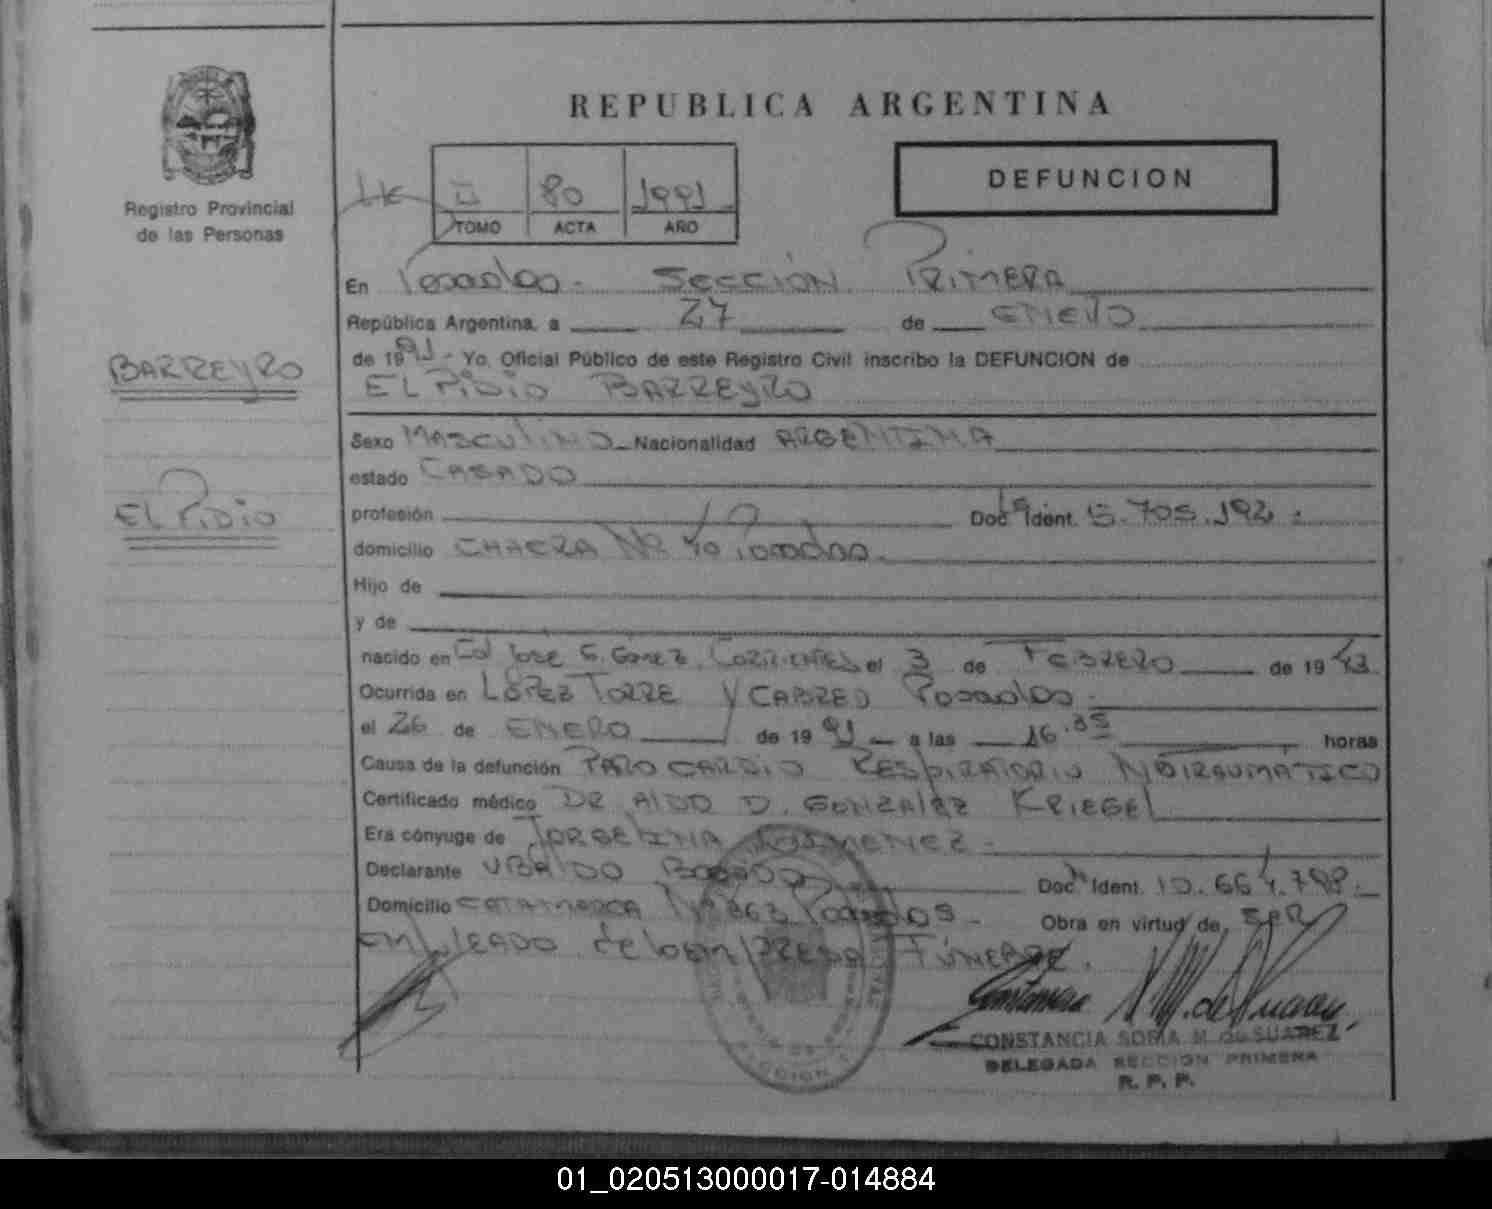 REPUBLICA ARGENTINA
DEFUNCION
Registro Provincial
de las Personas
II 80 1991
TOMO ACTA AÑO
En Posadas - SECCIÓN PRIMERA
República Argentina, a 27 de ENERO
de 1991 - Yo, Oficial Público de este Registro Civil inscribo la DEFUNCION de
BARREYRO
ELPIDIO BARREYRO
Sexo MASCULINO Nacionalidad ARGENTINA
estado CASADO
ELPIDIO
profesión Doc Ident. 5.705.192.
domicilio CHACRA Nº 40 Posadas
Hijo de
y de
nacido en Col José G. Gómez. CORRIENTES el 3 de FEBRERO de 1943
Ocurrida en LÓPEZ TORRE Y CABRED Posadas.
el 26 de ENERO de 1991 a las 16.35 horas
Causa de la defunción PARO CARDIO RESPIRATORIO NO TRAUMATICO
Certificado médico DR ALDO D. GONZALEZ KRIEGEL
Era cónyuge de JORGELINA
Declarante UBALDO Doc Ident. 10.664.798.
Domicilio CATAMARCA Nº 863 Posadas - Obra en virtud de SER
EMPLEADO de la EMPRESA FÚNEBRE.
CONSTANCIA SOFIA M. de SUAREZ
DELEGADA SECCION PRIMERA
R. P. P.
01_020513000017-014884